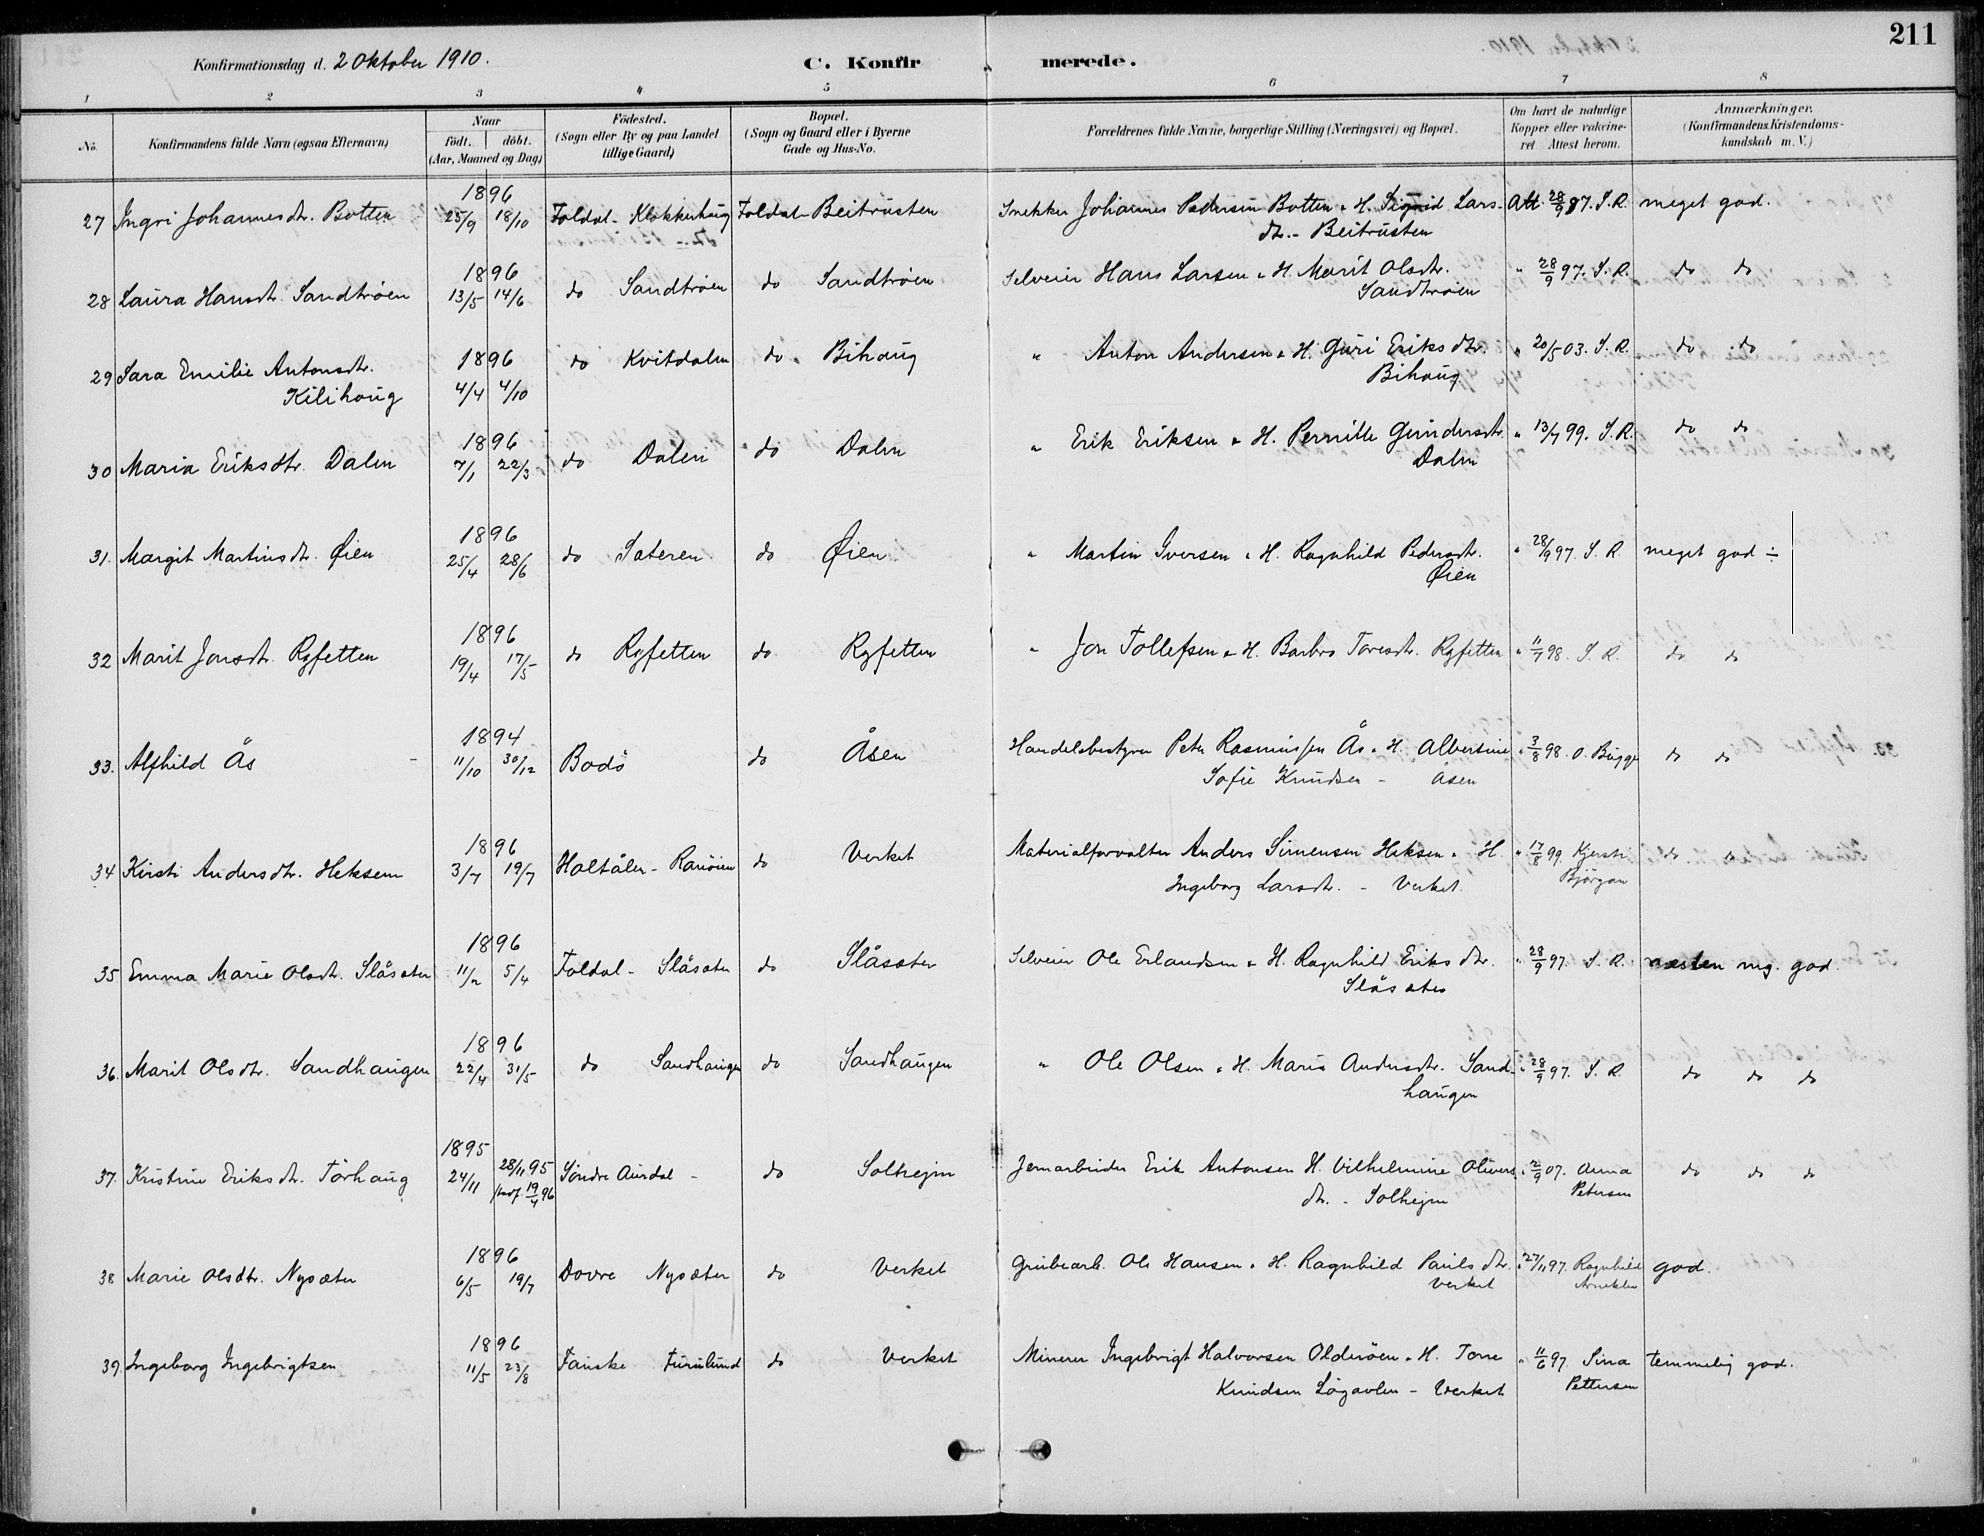 211
Konfirmationsdag d. 2 Oktober 1910.
C. Konfirmerede.
1 2 3 4 5 6 7 8
No. Konfirmandens fulde Navn (ogsaa Efternavn) Naar födt. döbt. (Aar, Maaned og Dag) Födested. (Sogn eller By og paa Landet tillige Gaard) Bopæl. (Sogn og Gaard eller i Byerne Gade og Hus-No. Forældrenes fulde Navne, borgerlige Stilling (Næringsvei) og Bopæl. Om havt de naturlige Kopper eller vakcineret. Attest herom. Anmærkninger. (Konfirmandens Kristendomskundskab m. V.)
1896
27 Ingri Johannesdtr. Botten 25/9 18/10 Foldal - Klokkerhaug Foldal - Beitrusten Snekker Johannes Pedersen Botten & H. Sigrid Lars- Att. 28/9 97. S. R. meget god.
dtr. - Beitrusten
1896
28 Laura Hansdtr. Sandtrøen 13/5 14/6 do Sandtrøen do Sandtrøen Selveier Hans Larsen & H. Marit Olsdtr. " 28/9 97. S. R. do do
Sandtrøen
1896
29 Sara Emilie Antonsdtr. do Kvitdalen do. Bihaug " Anton Andersen & H. Guri Eriksdtr. " 20/5 03. S. R. do do
Kilihaug 4/4 4/10 Bihaug
1896
30 Maria Eriksdtr. Dalen 7/1 22/3 do Dalen do Dalen " Erik Eriksen & H. Pernille Gundersdtr. " 13/7 99. S. R. do do
Dalen
1896
31. Margit Martinsdtr. Øien 25/4 28/6 do Sæteren do Øien " Martin Iversen & H. Ragnhild Pedersdtr. " 28/9 97. S. R. meget god ÷
Øien
1896
32 Marit Jonsdtr. Ryfetten 19/4 17/5 do Ryfetten do Ryfetten " Jon Tollefsen & H. Barbro Toresdtr. Ryfetten " 11/7 98. S. R. do do
1894
33. Alfhild Ås 11/10 30/12 Bodö do Åsen Handelsbestyrer Peter Rasmussen Ås & H. Albertine " 3/8 98. O. Bugge do do
Sofie Knudsen - Åsen
1896
34 Kirsti Andersdtr. Heksem 3/7 19/7 Holtålen - Ranøien do Verket Materialforvalter Anders Simensen Heksem & H. " 17/8 99. Kjersti do do
Ingeborg Larsdtr. - Verket. Bjørgan
1896
35 Emma Marie Olsdtr. Slåsæter 11/2 5/4 Foldal - Slåsæter do Slåsæter Selveier Ole Erlandsen & H. Ragnhild Eriksdtr. " 28/9 97. S. R. næsten mg. god.
Slåsæter
1896
36. Marit Olsdtr. Sandhaugen 22/4 31/5 do Sandhaugen do Sandhaugen " Ole Olsen & H. Maria Andersdtr. Sand- " 28/9 97. S. R. do do do
haugen
1895
37. Kristine Eriksdtr. Torhaug 24/11 28/11 95 Søndre Aurdal - do Solhejm Jernarbeider Erik Antonsen H. Vilhelmine Olivers " 2/9 07. Anna do do do
stadf. 19/4 96 dtr. - Solhejm Petersen
1896
38 Marie Olsdtr. Nysæter 6/5 19/7 Dovre Nysæter do Verket Grubearb. Ole Hansen & H. Ragnhild Paulsdtr. " 27/11 97. Ragnhild god.
Verket
1896
39. Ingeborg Ingebrigtsen 11/5 23/8 Fauske Furulund do Verket Minerer Ingebrigt Halvorsen Olderøen & H. Torre " 11/6 97. Sina temmelig god.
Knudsen Løgavlen - Verket Pettersen